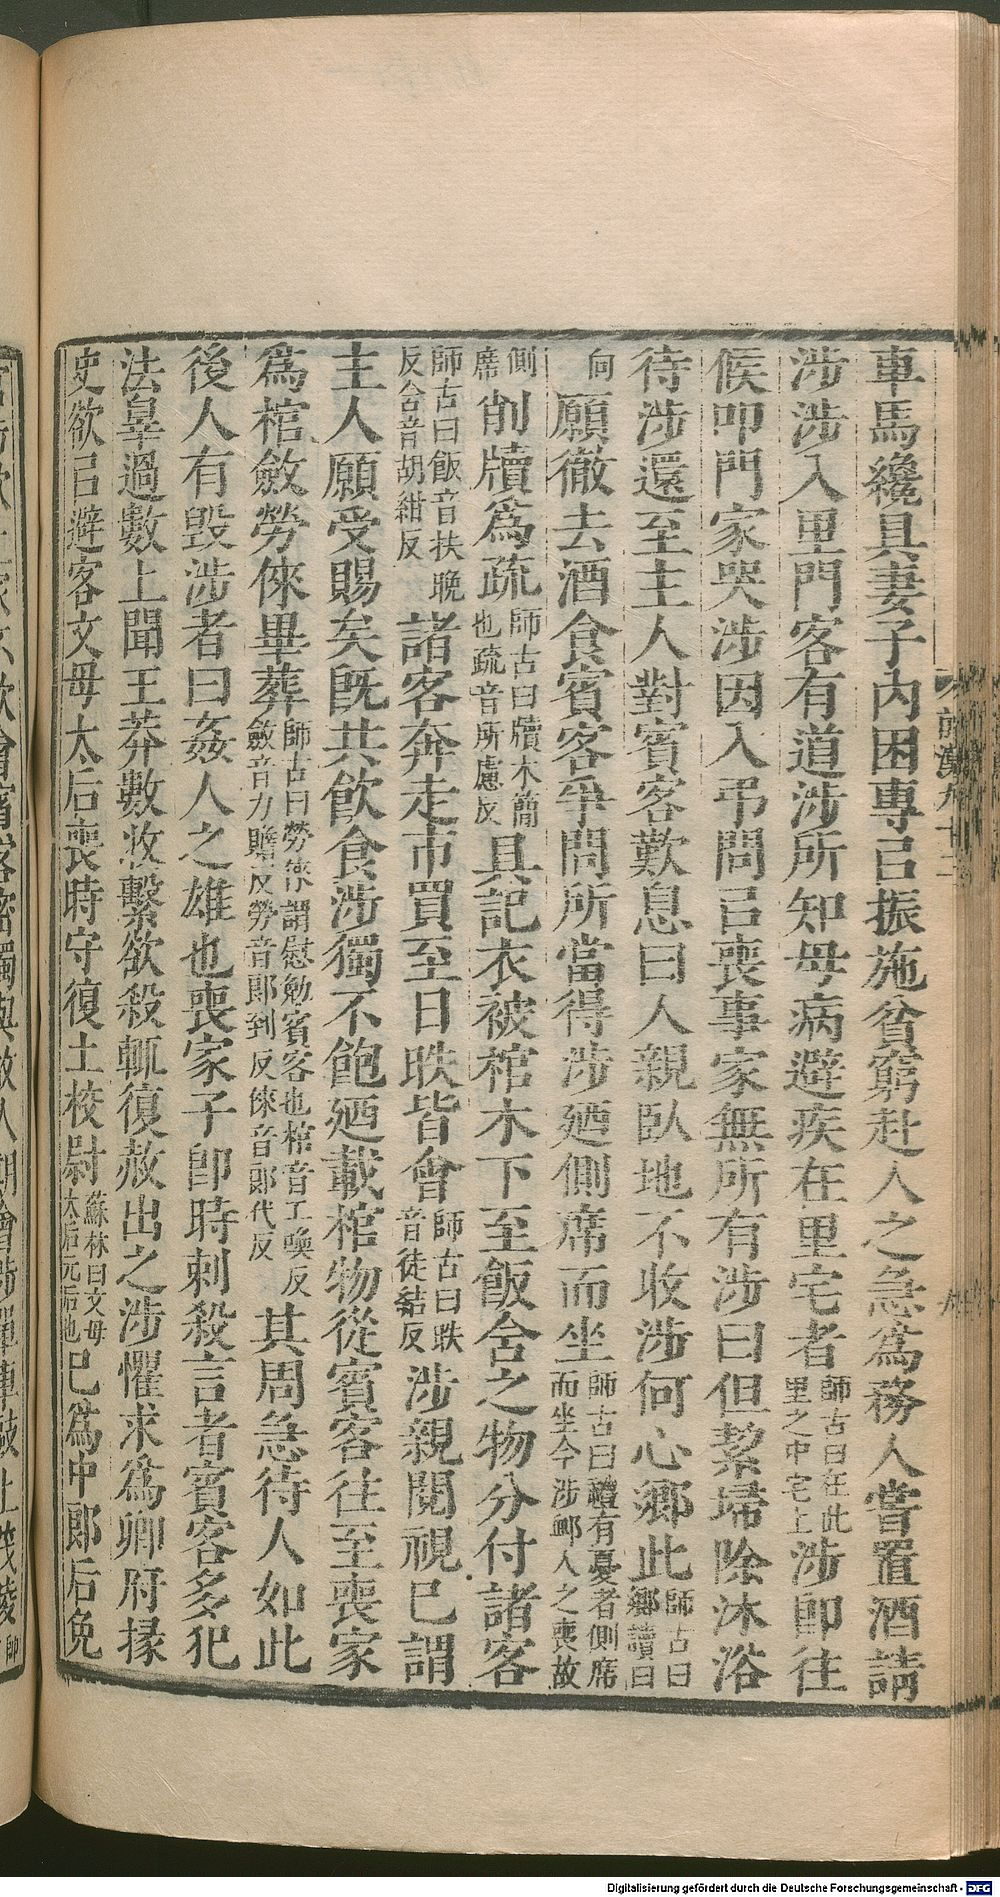 車馬纔具妻子內困專㠯振施貧窮赴人之急爲務人嘗置酒請
涉涉入里門客有道涉所知母病避疾在里宅者師古曰在此里之中宅上涉即往
候叩門家哭涉因入弔問㠯喪事家無所有涉曰但絜埽除沐浴
待涉還至主人對賓客歎息曰人親臥地不收涉何心鄉此師古曰鄉讀曰
向願徹去酒食賓客爭問所當得涉廼側席而坐師古曰禮有憂者側席而坐今涉卹人之喪故
側席削牘爲疏師古曰牘木簡也疏音所慮反具記衣被棺木下至飯含之物分付諸客
師古曰飯音扶晚反含音胡紺反諸客奔走市買至日昳皆會師古曰昳音徒結反涉親閱視已謂
主人願受賜矣旣共飲食涉獨不飽廼載棺物從賓客往至喪家
爲棺斂勞倈畢葬師古曰勞倈謂慰勉賓客也棺音工喚反斂音力贍反勞音郎到反倈音郎代反其周急待人如此
後人有毀涉者曰姦人之雄也喪家子卽時刺殺言者賓客多犯
法辠過數上聞王莽數收繫欲殺輒復赦出之涉懼求爲卿府掾
史欲㠯避客文母太后喪時守復土校尉蘇林曰文母太后元后也已爲中郎后免
前漢九十二
九
Digitalisierung gefördert durch die Deutsche Forschungsgemeinschaft - DFG